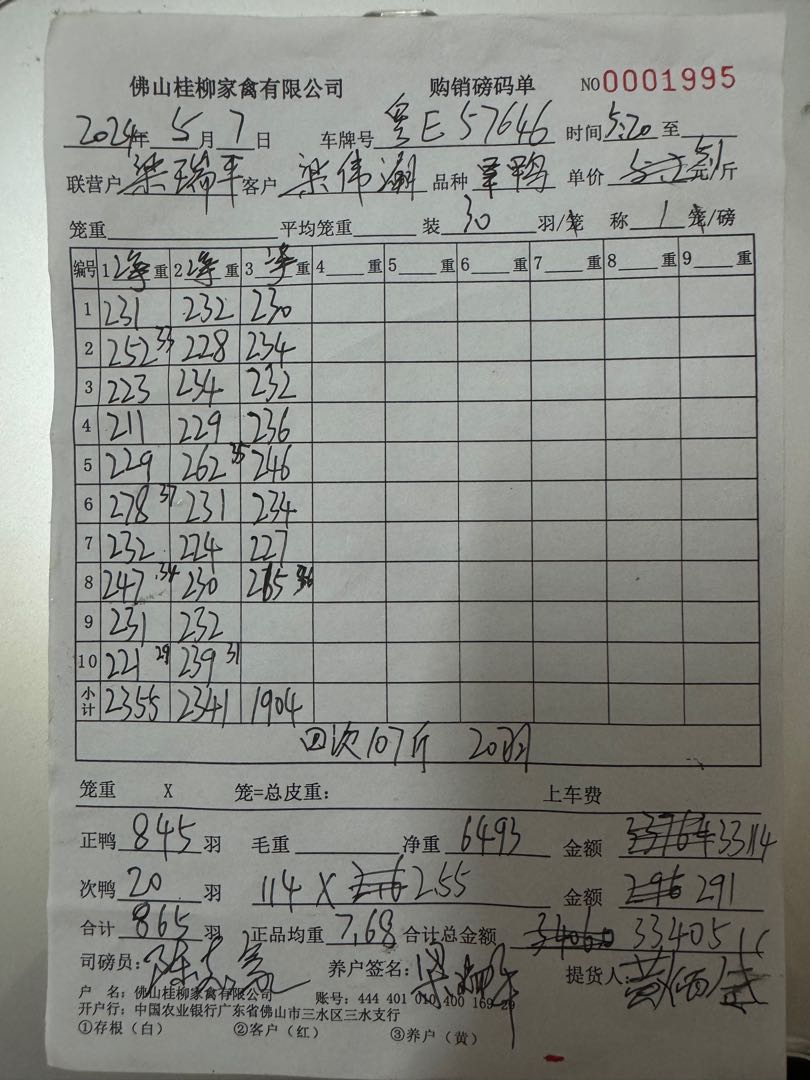 佛山桂柳家禽有限公司 购销磅码单 NO 0001995
2024年 5月 7日 车牌号 粤E57646 时间 5:20 至
联营户 梁瑞平 客户 梁伟 品种 鸭 单价 5.1 元/斤
笼重 平均笼重 装 30 羽/笼 称 1 笼/磅
编号 1 重 2 重 3 重 4 重 5 重 6 重 7 重 8 重 9 重
1 231 232 230
2 252 33 228 234
3 223 234 232
4 211 229 236
5 229 262 35 246
6 278 37 231 234
7 232 224 227
8 247 34 230 265 36
9 231 232
10 221 29 239 31
小计 2355 2341 1904
次107斤 20羽
笼重 X 笼=总皮重: 上车费
正鸭 845 羽 毛重 净重 6493 金额 33114
次鸭 20 羽 114 X 2.55 金额 291
合计 865 羽 正品均重 7.68 合计总金额 33405
司磅员: 养户签名: 梁瑞平 提货人:
户 名: 佛山桂柳家禽有限公司 账号: 444 401 010 400 169 29
开户行: 中国农业银行广东省佛山市三水区三水支行
①存根（白） ②客户（红） ③养户（黄）